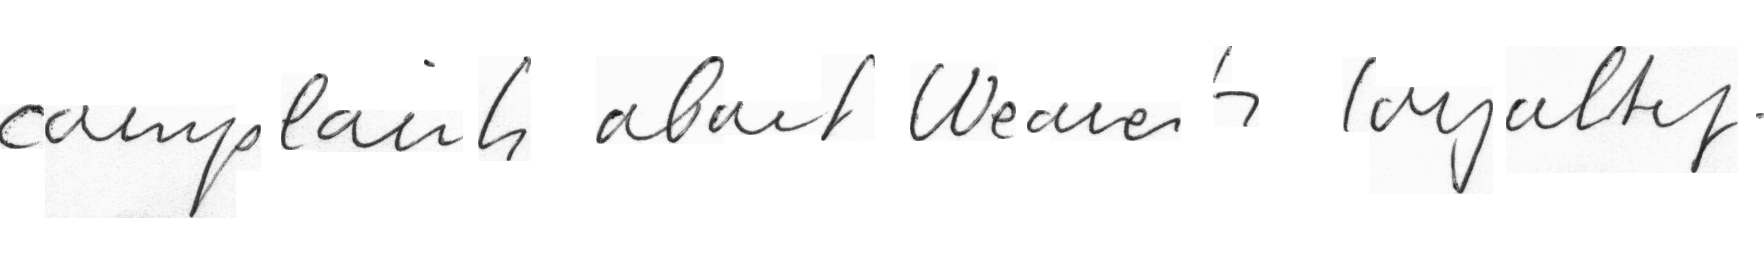 complaints about Weaver's loyalty.